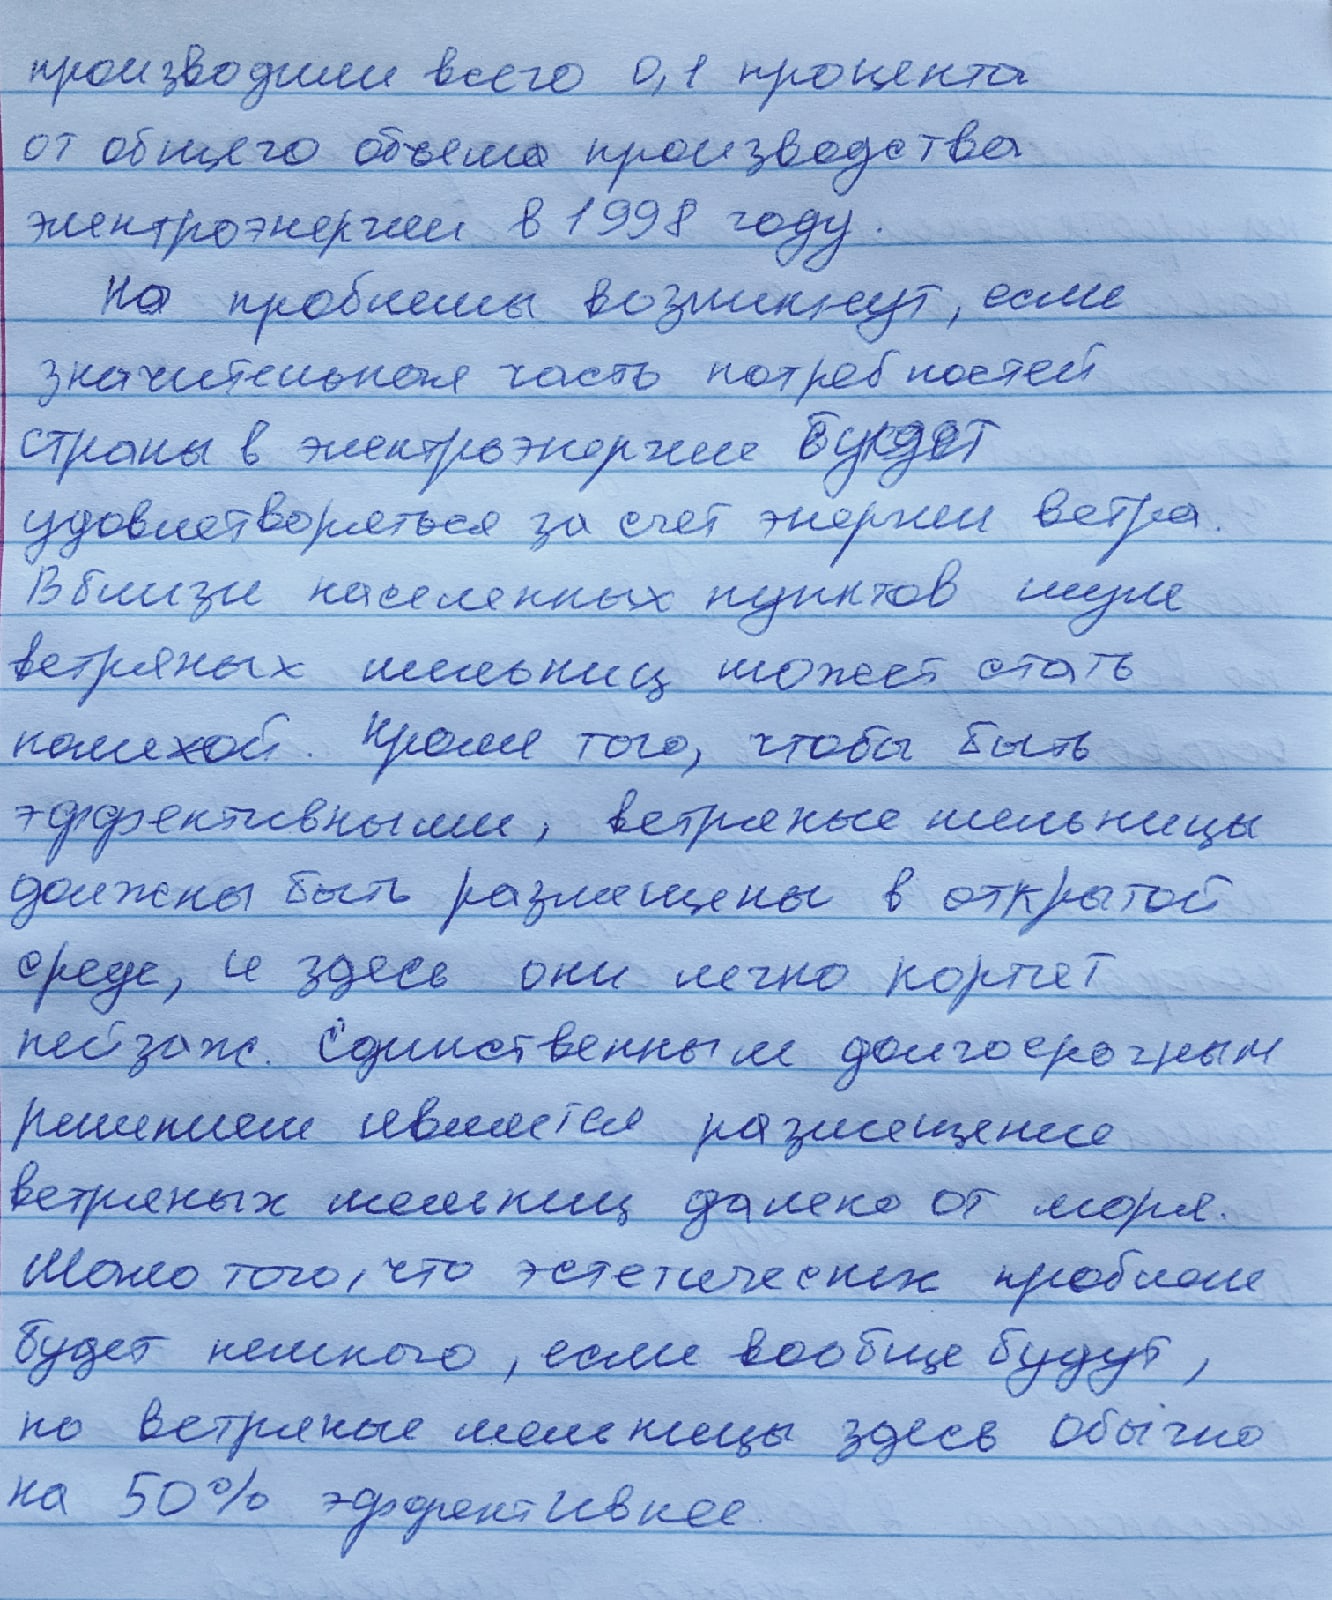 производили всего 0,1 процента
от общего объема производства
электроэнергии в 1998 году.
Но проблемы возникнут, если
значительная часть потребностей
страны в электроэнергии будет
удовлетворяться за счет энергии ветра.
Вблизи населенных пунктов шум
ветряных мельниц может стать
помехой. Кроме того, чтобы быть
эффективными, ветряные мельницы
должны быть размещены в открытой
среде, и здесь они легко портят
пейзаж. Единственным долгосрочным
решением является размещение
ветряных мельниц далеко от моря.
Мало того, что эстетических проблем
будет немного, если вообще будут,
но ветряные мельницы здесь обычно
на 50% эффективнее